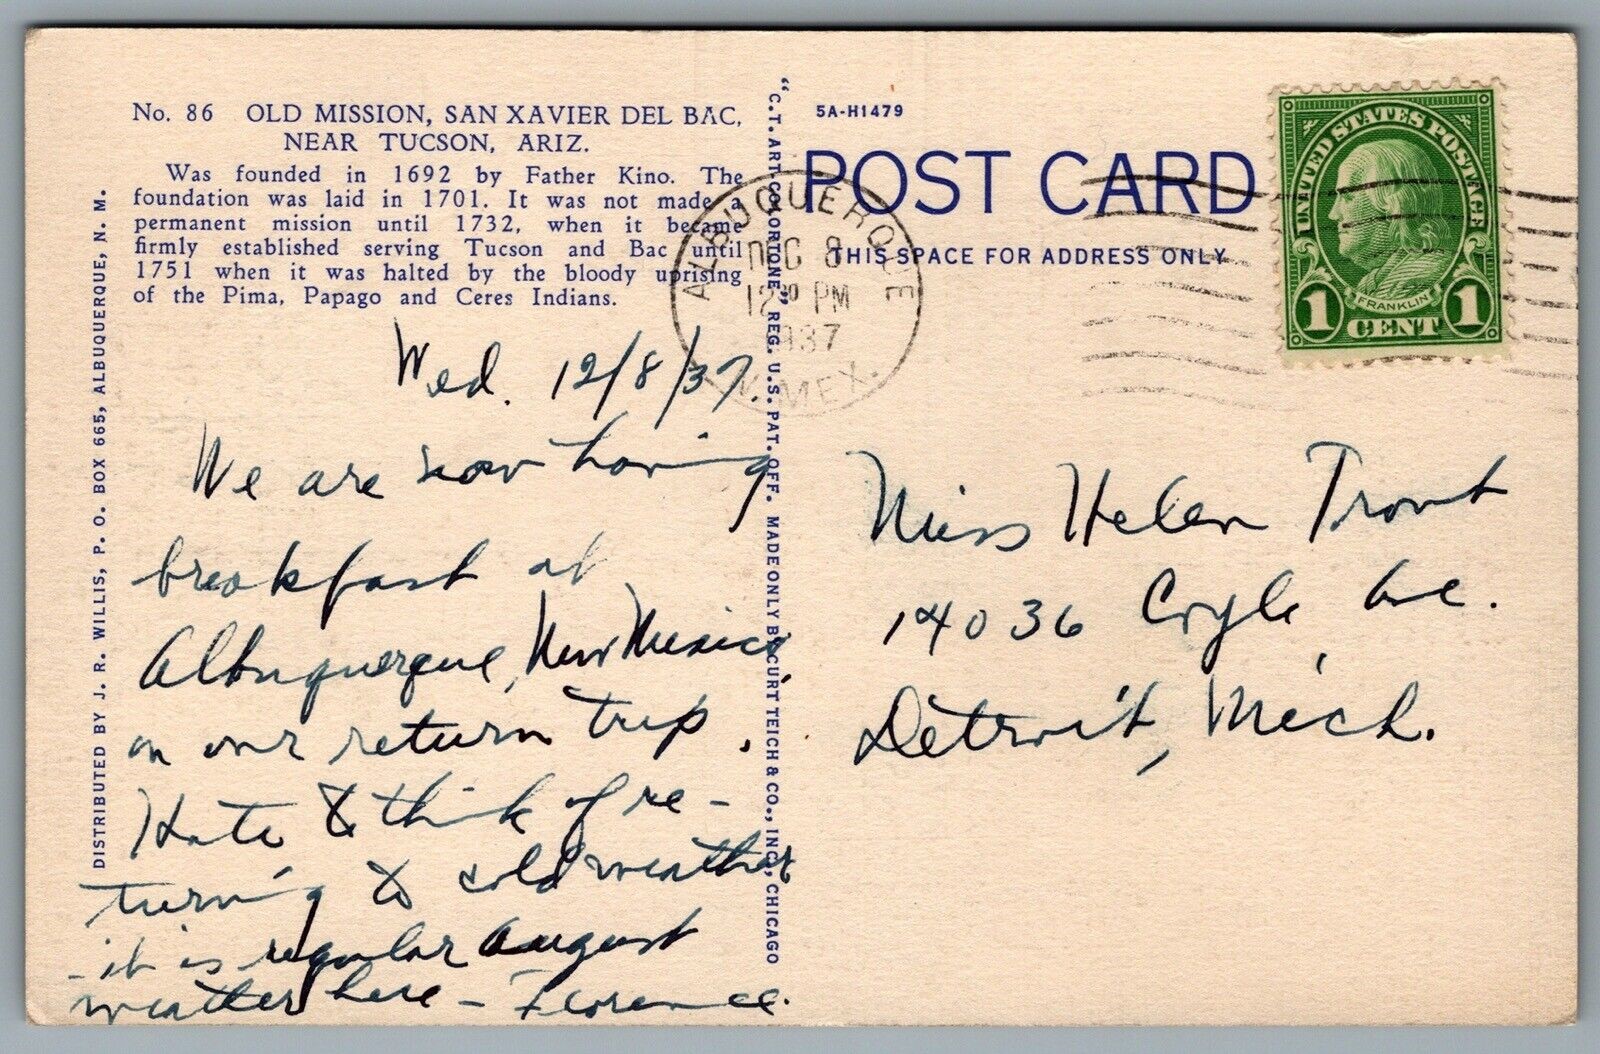 No. 86 OLD MISSION, SAN XAVIER DEL BAC,
NEAR TUCSON, ARIZ.
Was founded in 1692 by Father Kino. The
foundation was laid in 1701. It was not made a
permanent mission until 1732, when it became
firmly established serving Tucson and Bac until
1751 when it was halted by the bloody uprising
of the Pima, Papago and Ceres Indians.
DISTRIBUTED BY J. R. WILLIS, P. O. BOX 665, ALBUQUERQUE, N. M.
Wed. 12/8/37.
We are now having
breakfast at
Albuquerque, New Mexico
on our return trip.
Hate to think of re-
turning to cold weather
- it is regular August
weather here - Florence.
"C.T. ART-COLORTONE" REG. U.S. PAT. OFF. MADE ONLY BY CURT TEICH & CO., INC., CHICAGO
5A-H1479
POST CARD
THIS SPACE FOR ADDRESS ONLY
ALBUQUERQUE
DEC 8
12 30 PM
1937
N. MEX.
UNITED STATES POSTAGE
FRANKLIN
1 CENT 1
Miss Helen Trout
14036 Coyle Ave.
Detroit, Mich.